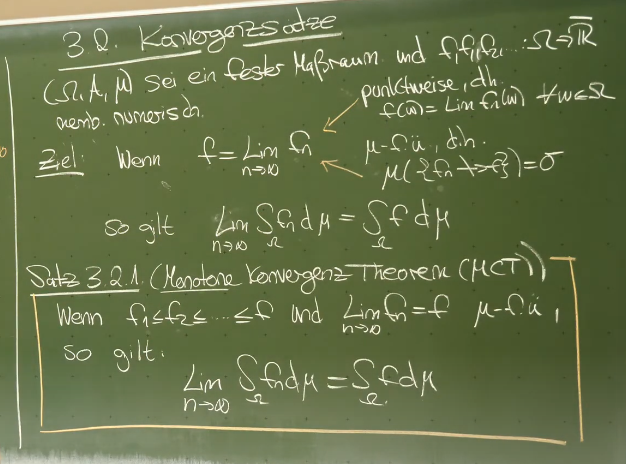 3.2. Konvergenzsätze
(Ω, A, μ) sei ein fester Maßraum und f, f₁, f₂, ...: Ω → ℝ̅
memb. numerisch.
punktweise, d.h.
f(ω) = Lim fn(ω) ∀ω∈Ω
Ziel: Wenn f = Lim fn
n→∞
μ-f.ü, d.h.
μ({fn ↛ f}) = 0
so gilt Lim ∫ fn dμ = ∫ f dμ
n→∞ Ω Ω
Satz 3.2.1. (Monotone Konvergenz-Theorem (MCT))
Wenn f₁ ≤ f₂ ≤ ... ≤ f und Lim fn = f μ-f.ü,
n→∞
so gilt:
Lim ∫ fn dμ = ∫ f dμ
n→∞ Ω Ω